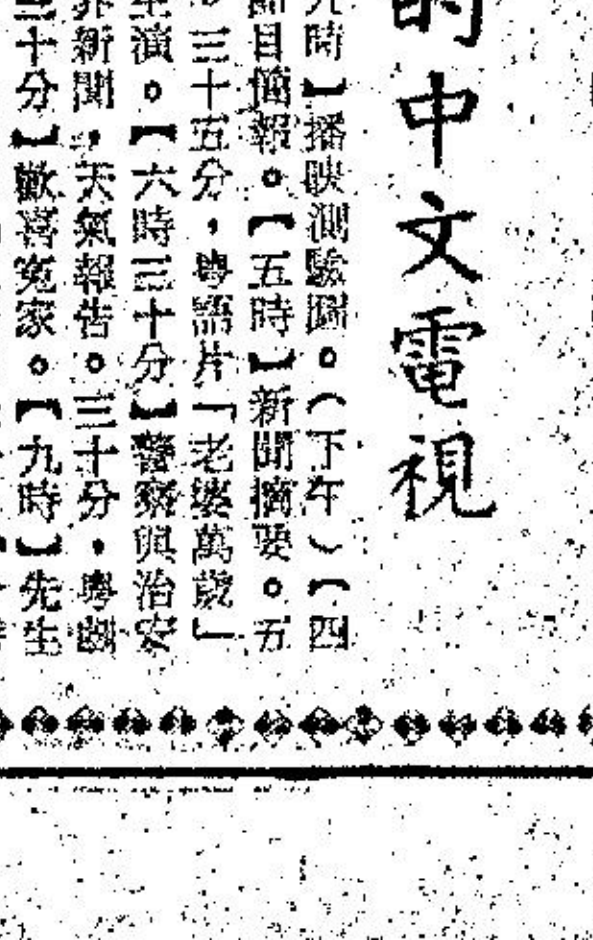 的中文電視
時】播映測驗圖。（下午）【四
節目簡報。【五時】新聞摘要。五
。三十五分，粵語片「老婆萬歲」
主演。【六時三十分】警察與治安
界新聞，天氣報告。三十分，粵劇
三十分】歡喜冤家。【九時】先生